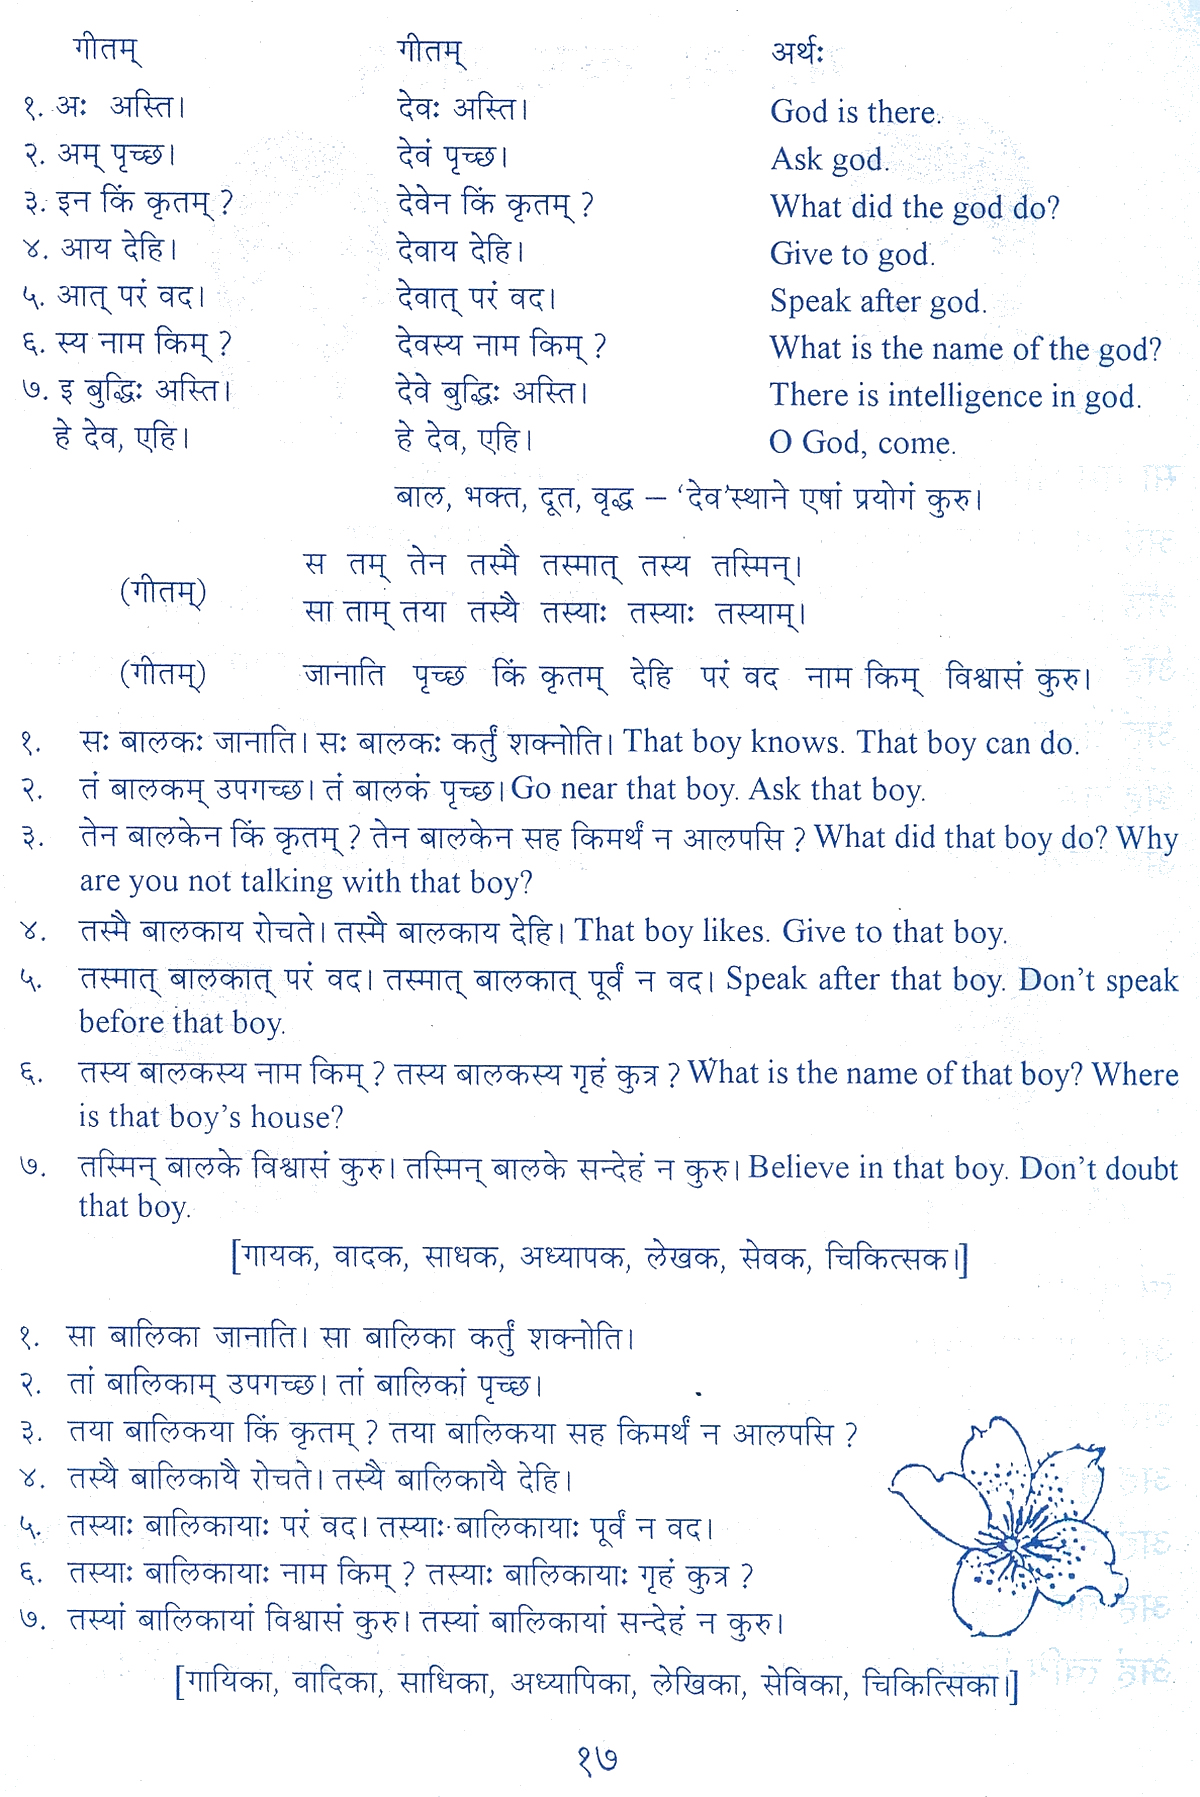 गीतम् गीतम् अर्थः
१. अः अस्ति। देवः अस्ति। God is there.
२. अम् पृच्छ। देवं पृच्छ। Ask god.
३. इन किं कृतम् ? देवेन किं कृतम् ? What did the god do?
४. आय देहि। देवाय देहि। Give to god.
५. आत् परं वद। देवात् परं वद। Speak after god.
६. स्य नाम किम् ? देवस्य नाम किम् ? What is the name of the god?
७. इ बुद्धिः अस्ति। देवे बुद्धिः अस्ति। There is intelligence in god.
हे देव, एहि। हे देव, एहि। O God, come.
बाल, भक्त, दूत, वृद्ध – ‘देव’स्थाने एषां प्रयोगं कुरु।
स तम् तेन तस्मै तस्मात् तस्य तस्मिन्।
(गीतम्)
सा ताम् तया तस्यै तस्याः तस्याः तस्याम्।
(गीतम्) जानाति पृच्छ किं कृतम् देहि परं वद नाम किम् विश्वासं कुरु।
१. सः बालकः जानाति। सः बालकः कर्तुं शक्नोति। That boy knows. That boy can do.
२. तं बालकम् उपगच्छ। तं बालकं पृच्छ। Go near that boy. Ask that boy.
३. तेन बालकेन किं कृतम् ? तेन बालकेन सह किमर्थं न आलपसि ? What did that boy do? Why
are you not talking with that boy?
४. तस्मै बालकाय रोचते। तस्मै बालकाय देहि। That boy likes. Give to that boy.
५. तस्मात् बालकात् परं वद। तस्मात् बालकात् पूर्वं न वद। Speak after that boy. Don’t speak
before that boy.
६. तस्य बालकस्य नाम किम् ? तस्य बालकस्य गृहं कुत्र ? What is the name of that boy? Where
is that boy’s house?
७. तस्मिन् बालके विश्वासं कुरु। तस्मिन् बालके सन्देहं न कुरु। Believe in that boy. Don’t doubt
that boy.
[गायक, वादक, साधक, अध्यापक, लेखक, सेवक, चिकित्सक।]
१. सा बालिका जानाति। सा बालिका कर्तुं शक्नोति।
२. तां बालिकाम् उपगच्छ। तां बालिकां पृच्छ।
३. तया बालिकया किं कृतम् ? तया बालिकया सह किमर्थं न आलपसि ?
४. तस्यै बालिकायै रोचते। तस्यै बालिकायै देहि।
५. तस्याः बालिकायाः परं वद। तस्याः बालिकायाः पूर्वं न वद।
६. तस्याः बालिकायाः नाम किम् ? तस्याः बालिकायाः गृहं कुत्र ?
७. तस्यां बालिकायां विश्वासं कुरु। तस्यां बालिकायां सन्देहं न कुरु।
[गायिका, वादिका, साधिका, अध्यापिका, लेखिका, सेविका, चिकित्सिका।]
१७